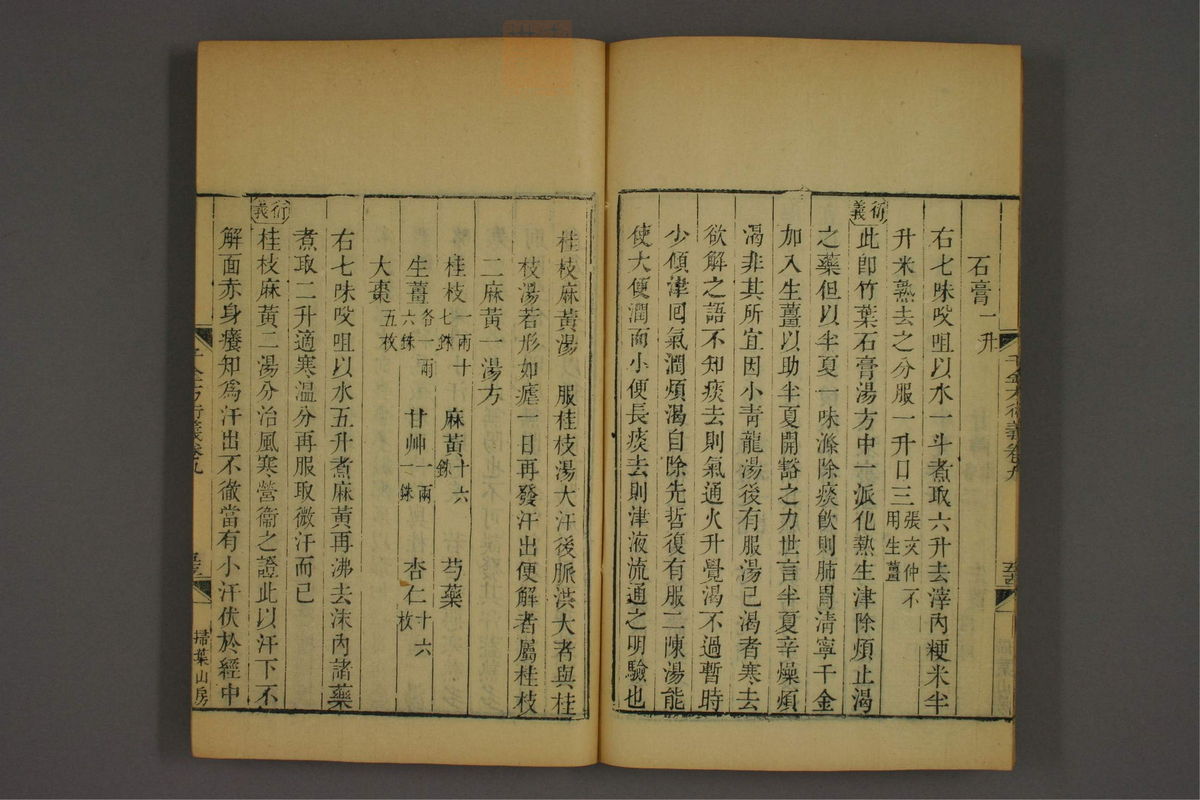 石膏一升
右七味㕮咀以水一斗煮取六升去滓內粳米半
升米熟去之分服一升日三張文仲不用生薑
衍義
此卽竹葉石膏湯方中一派化熱生津除煩止渴
之藥但以半夏一味滌除痰飮則肺胃淸寧千金
加入生薑以助半夏開豁之力世言半夏辛燥煩
渴非其所宜因小靑龍湯後有服湯已渴者寒去
欲解之語不知痰去則氣通火升覺渴不過暫時
少傾津囘氣潤煩渴自除先哲復有服二陳湯能
使大便潤而小便長痰去則津液流通之明驗也
桂枝麻黃湯 服桂枝湯大汗後脈洪大者與桂
枝湯若形如瘧一日再發汗出便解者屬桂枝
二麻黃一湯方
桂枝一兩十七銖 麻黃十六銖 芍藥
生薑各一兩六銖 甘艸一兩一銖 杏仁十六枚
大棗五枚
右七味㕮咀以水五升煮麻黃再沸去沫內諸藥
煮取二升適寒溫分再服取微汗而已
衍義
桂枝麻黃二湯分治風寒營衞之證此以汗下不
解面赤身癢知爲汗出不徹當有小汗伏於經中
千金方衍義卷九
掃葉山房